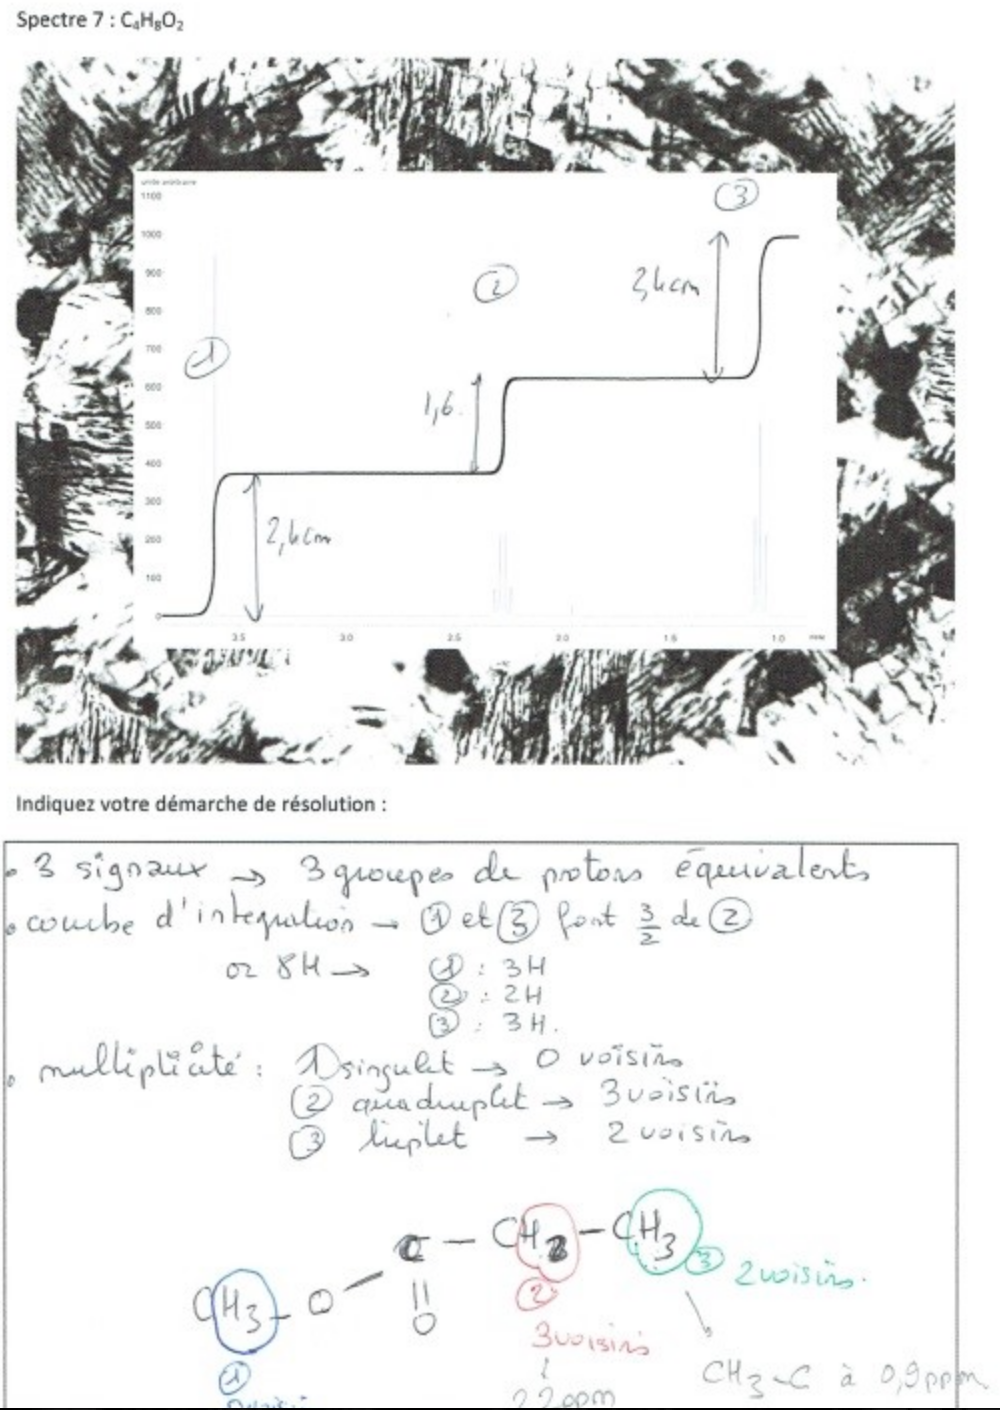 Spectre 7 : C₄H₈O₂
unité arbitraire
③
1100
1000
900
②
800
700
①
600
500
400
300
200
100
0
1,6
2,4cm
3.5 3.0 2.5 2.0 1.5 1.0 PPM
Indiquez votre démarche de résolution :
• 3 signaux → 3 groupes de protons équivalents
• courbe d'intégration → ① et ③ font 3/2 de ②
or 8H → ① : 3H
② : 2H
③ : 3H.
• multiplicité : ① singulet → 0 voisins
② quadruplet → 3 voisins
③ triplet → 2 voisins
C — CH2 — CH3
③ 2 voisins.
CH3 - O
||
O
②
3 voisins
①
CH3-C à 0,9 ppm